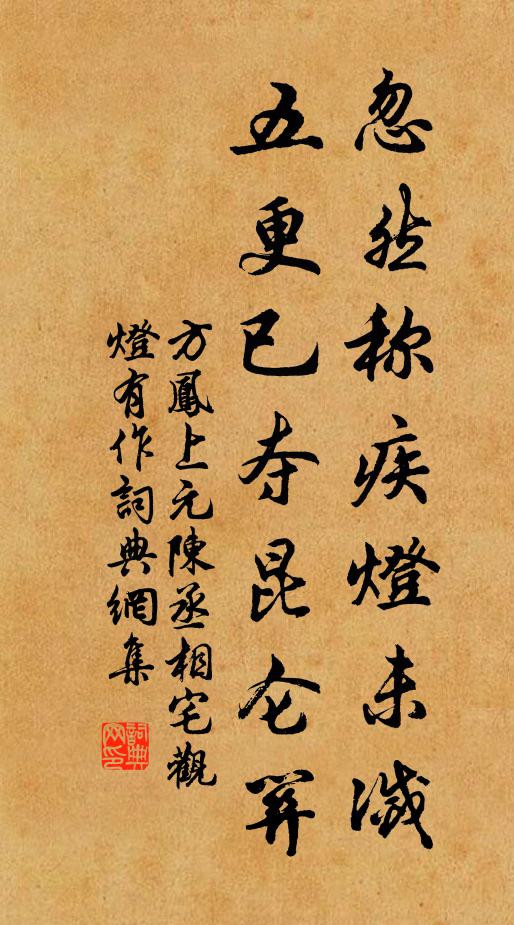 忽然称疾燈未滅
五更已夺昆仑関
方鳳上元陳丞相宅觀
燈有作詞典網集
詞典網印